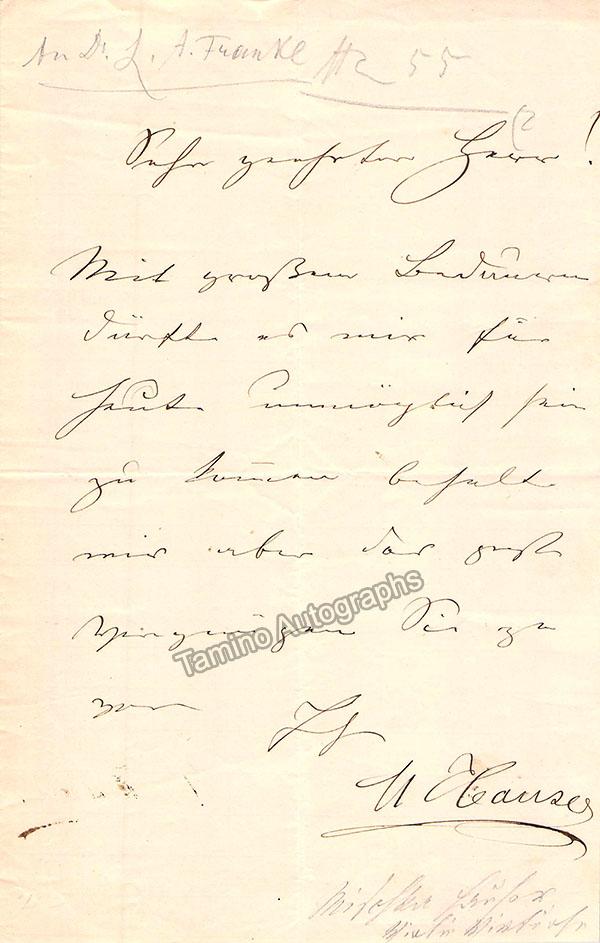 An Dr. L. A. Frankl
55
Sehr geehrter Herr!
Mit großem Bedauern
dürfte es mir für
heute unmöglich sein
zu kommen behalte
mir aber das
Vergnügen Sie zu
Tamino Autographs
Ihr
M Hauser
Mischka Hauser
Violin Virtuose